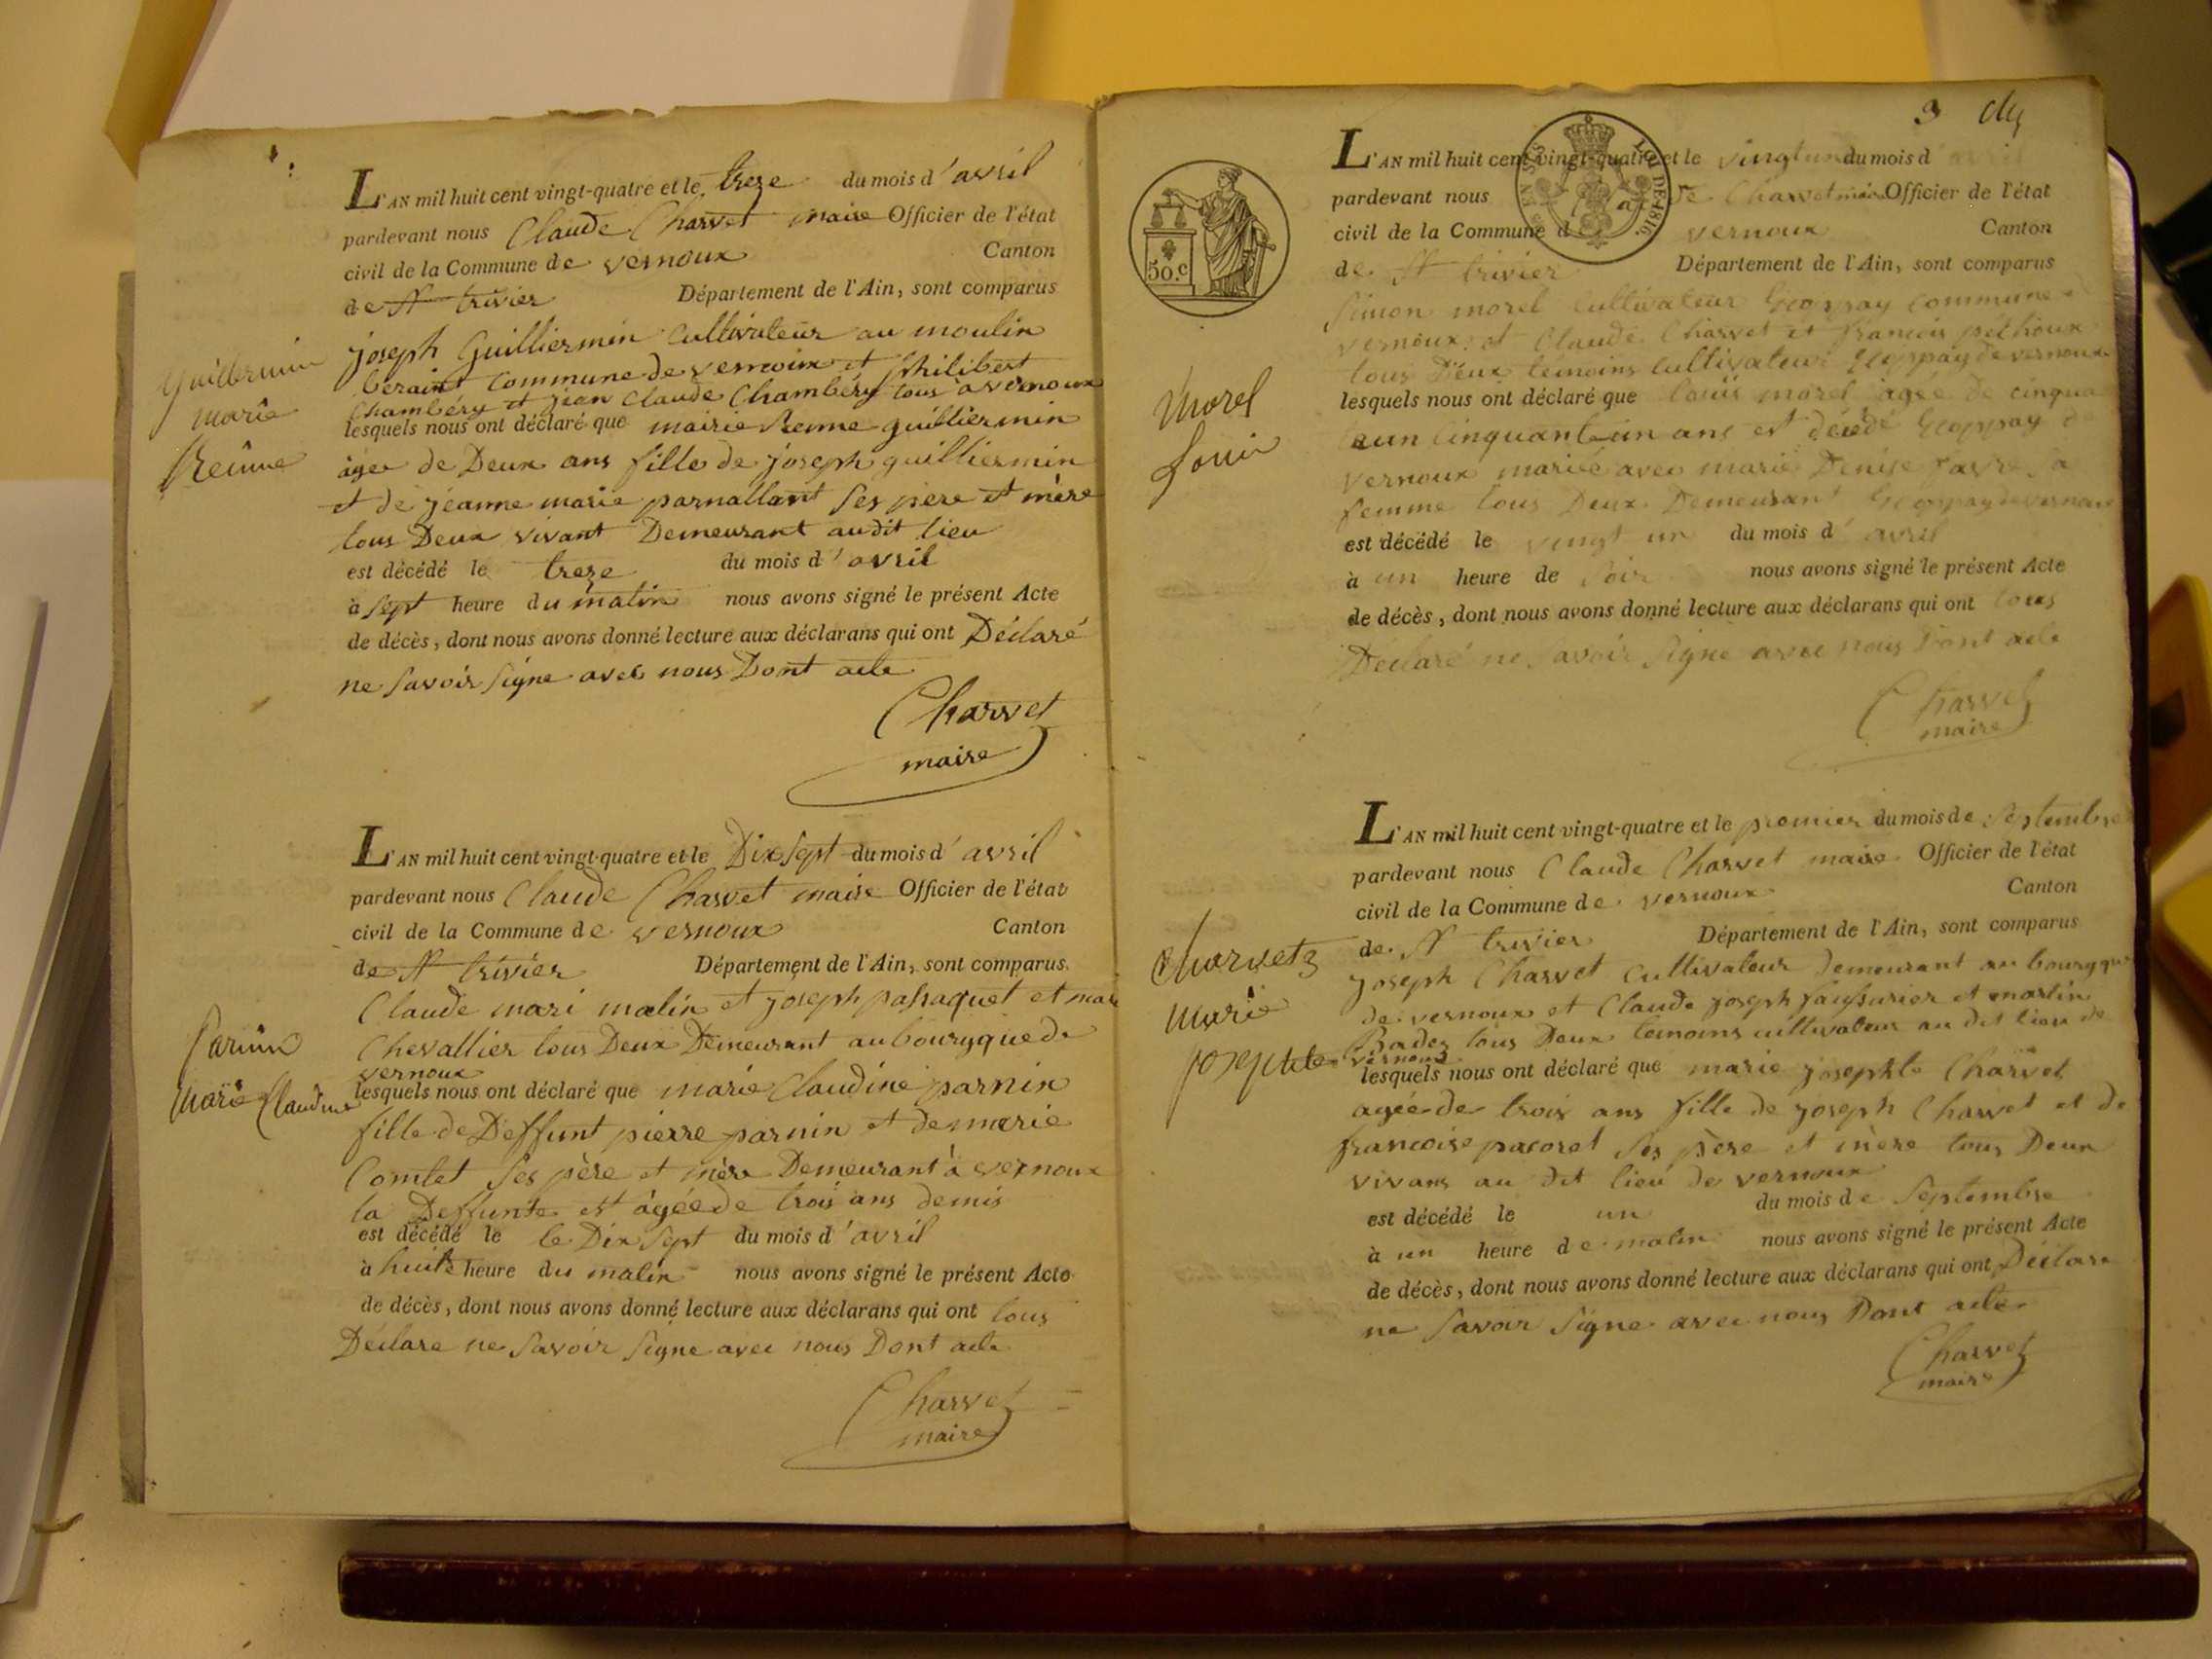 L'AN mil huit cent vingt-quatre et le treze du mois d'avril
pardevant nous Claude Charvet maire Officier de l'état
civil de la Commune de vernoux Canton
de St trivier Département de l'Ain, sont comparus
joseph Guilliermin Cultivateur au moulin
beraint Commune de vernoux et philibert
Chambéry et jean Claude Chambéry tous a vernoux
lesquels nous ont déclaré que mairie Reinne guilliermin
âgee de Deux ans fille de joseph guilliermin
et de jeanne marie parnallant ses père et mère
tous Deux vivant Demeurant audit lieu
est décédé le treze du mois d'avril
à sept heure du matin nous avons signé le présent Acte
de décès, dont nous avons donné lecture aux déclarans qui ont Déclaré
ne savoir signe avec nous Dont acte
Charvet
maire
Guillermin
marie
Reinne
L'AN mil huit cent vingt-quatre et le Dix sept du mois d'avril
pardevant nous Claude Charvet maire Officier de l'état
civil de la Commune de vernoux Canton
de St trivier Département de l'Ain, sont comparus
Claude mari malin et joseph passaquet et marie
Chevallier tous Deux Demeurant au bourg que de
vernoux
lesquels nous ont déclaré que marie Claudine parnin
fille de Deffunt pierre parnin et de marie
Comtet ses père et mère Demeurant à vernoux
la Deffunte est âgée de trois ans demis
est décédé le le Dix sept du mois d'avril
à huite heure du matin nous avons signé le présent Acte
de décès, dont nous avons donné lecture aux déclarans qui ont tous
Déclare ne savoir signe avec nous Dont acte
Charvet
maire
Parnin
Marie Claudine
3
50.c
EN SUS
LOI DE 1816.
L'AN mil huit cent vingt-quatre et le vingt un du mois d'avril
pardevant nous Claude Charvet maire Officier de l'état
civil de la Commune de vernoux Canton
de St trivier Département de l'Ain, sont comparus
Simon morel Cultivateur Commune
vernoux et Claude Charvet et francois pethioux
tous Deux temoins cultivateur de vernoux
lesquels nous ont déclaré que louis morel agée de cinqua
un cinquante un ans est décédé
vernoux mariée avec marie Denise favre
femme tous Deux Demeurant
est décédé le vingt un du mois d'avril
à un heure de soir nous avons signé le présent Acte
de décès, dont nous avons donné lecture aux déclarans qui ont tous
Déclaré ne savoir signe avec nous Dont acte
Charvet
maire
Morel
Louis
L'AN mil huit cent vingt-quatre et le premier du mois de septembre
pardevant nous Claude Charvet maire Officier de l'état
civil de la Commune de vernoux Canton
de St trivier Département de l'Ain, sont comparus
joseph Charvet cultivateur Demeurant au bourg que
de vernoux et Claude joseph et martin
tous Deux temoins cultivateur au dit lieu de
vernoux
lesquels nous ont déclaré que marie josephte Charvet
agée de trois ans fille de joseph Charvet et de
francoise pacoret ses père et mère tous Deux
vivans au dit lieu de vernoux
est décédé le un du mois de septembre
à un heure de matin nous avons signé le présent Acte
de décès, dont nous avons donné lecture aux déclarans qui ont Déclare
ne savoir signe avec nous Dont acte
Charvet
maire
Charvet
Marie
josephte